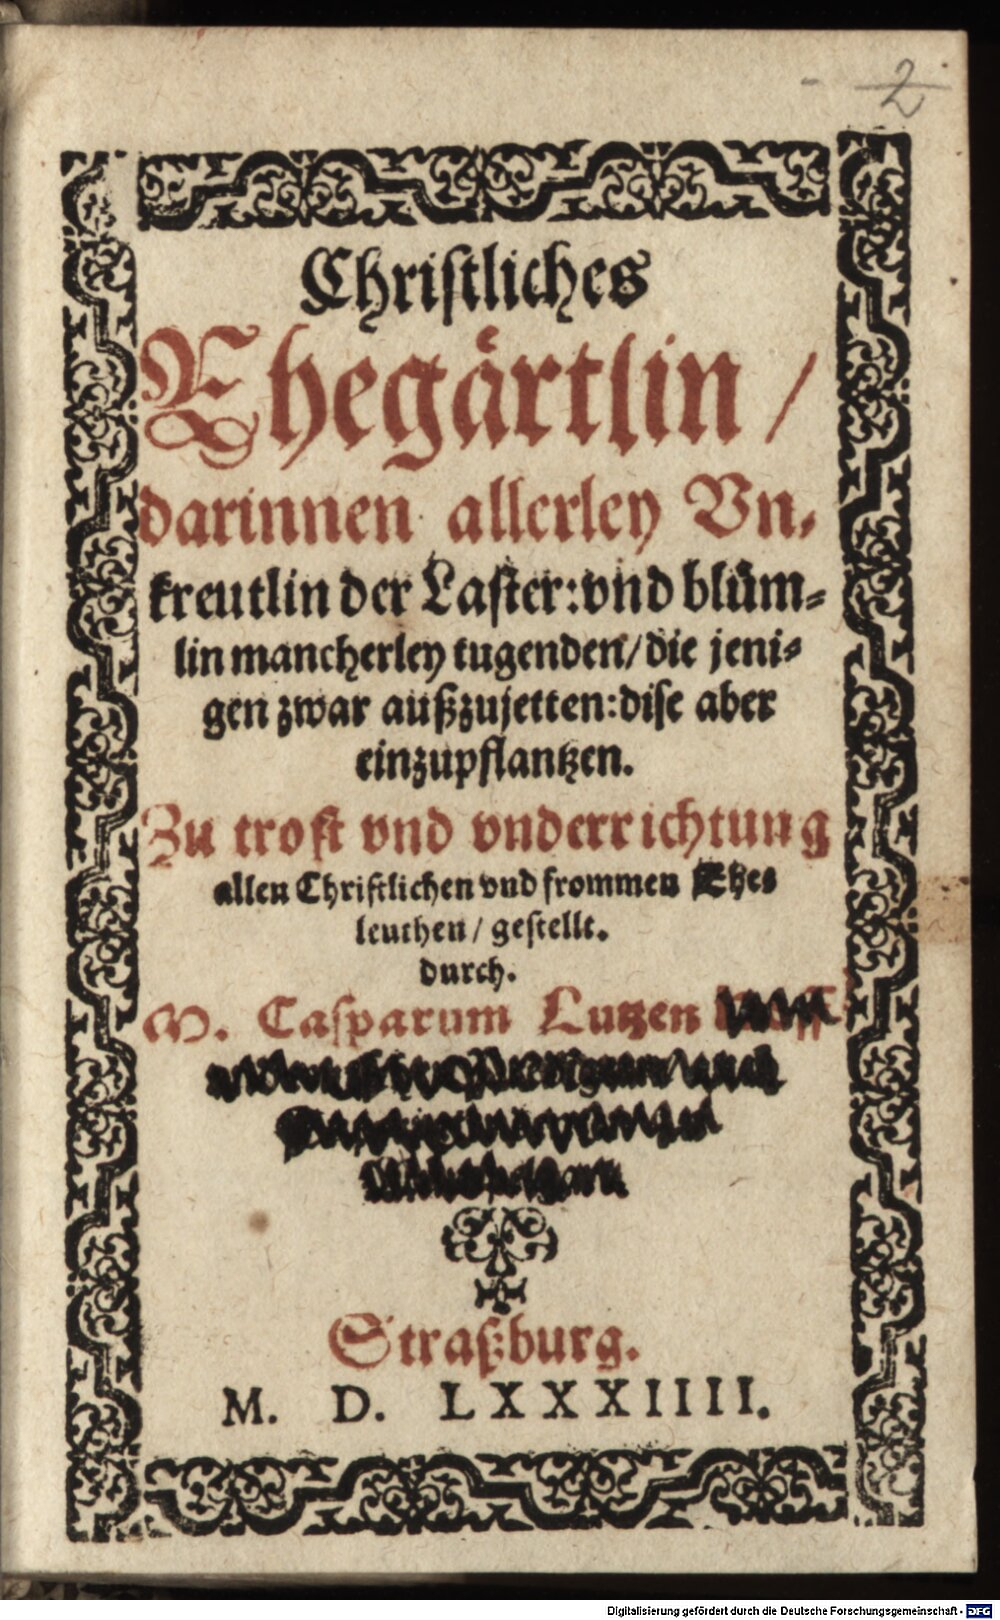 2
Christliches
Ehegärtlin /
darinnen allerley Vn-
kreutlin der Laster: vnd blüm-
lin mancherley tugenden / die jeni-
gen zwar außzujetten: dise aber
einzupflantzen.
Zu trost vnd vnderrichtung
allen Christlichen vnd frommen Ehe-
leuthen / gestellt.
durch.
M. Casparum Lutzen
Straßburg.
M. D. LXXXIIII.
Digitalisierung gefördert durch die Deutsche Forschungsgemeinschaft - DFG